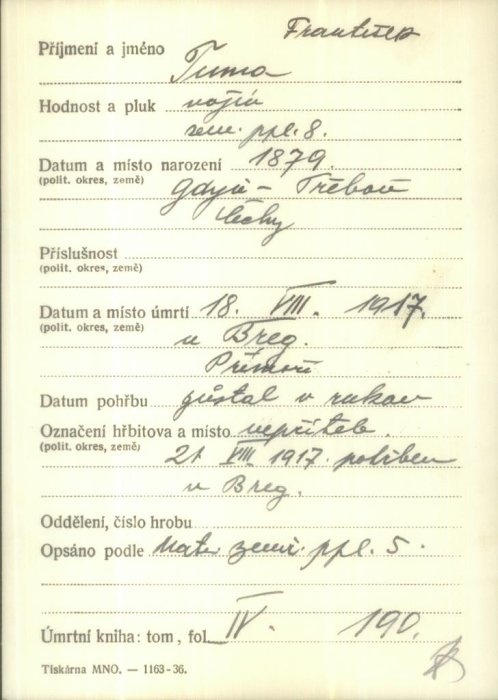 František
Příjmení a jméno Tuma
Hodnost a pluk vojín
zem. ppl. 8.
Datum a místo narození 1879.
(polit. okres, země) Gdyň - Třeboň
Čechy
Příslušnost
(polit. okres, země)
Datum a místo úmrtí 18. VIII. 1917.
(polit. okres, země) u Breg.
Přímoří
Datum pohřbu zůstal v rukou
Označení hřbitova a místo nepřítele.
(polit. okres, země) 21. VIII. 1917 pohřben
u Breg.
Oddělení, číslo hrobu
Opsáno podle Matr. zem. ppl. 5.
Úmrtní kniha: tom, fol. IV. 190.
Tiskárna MNO. — 1163-36.